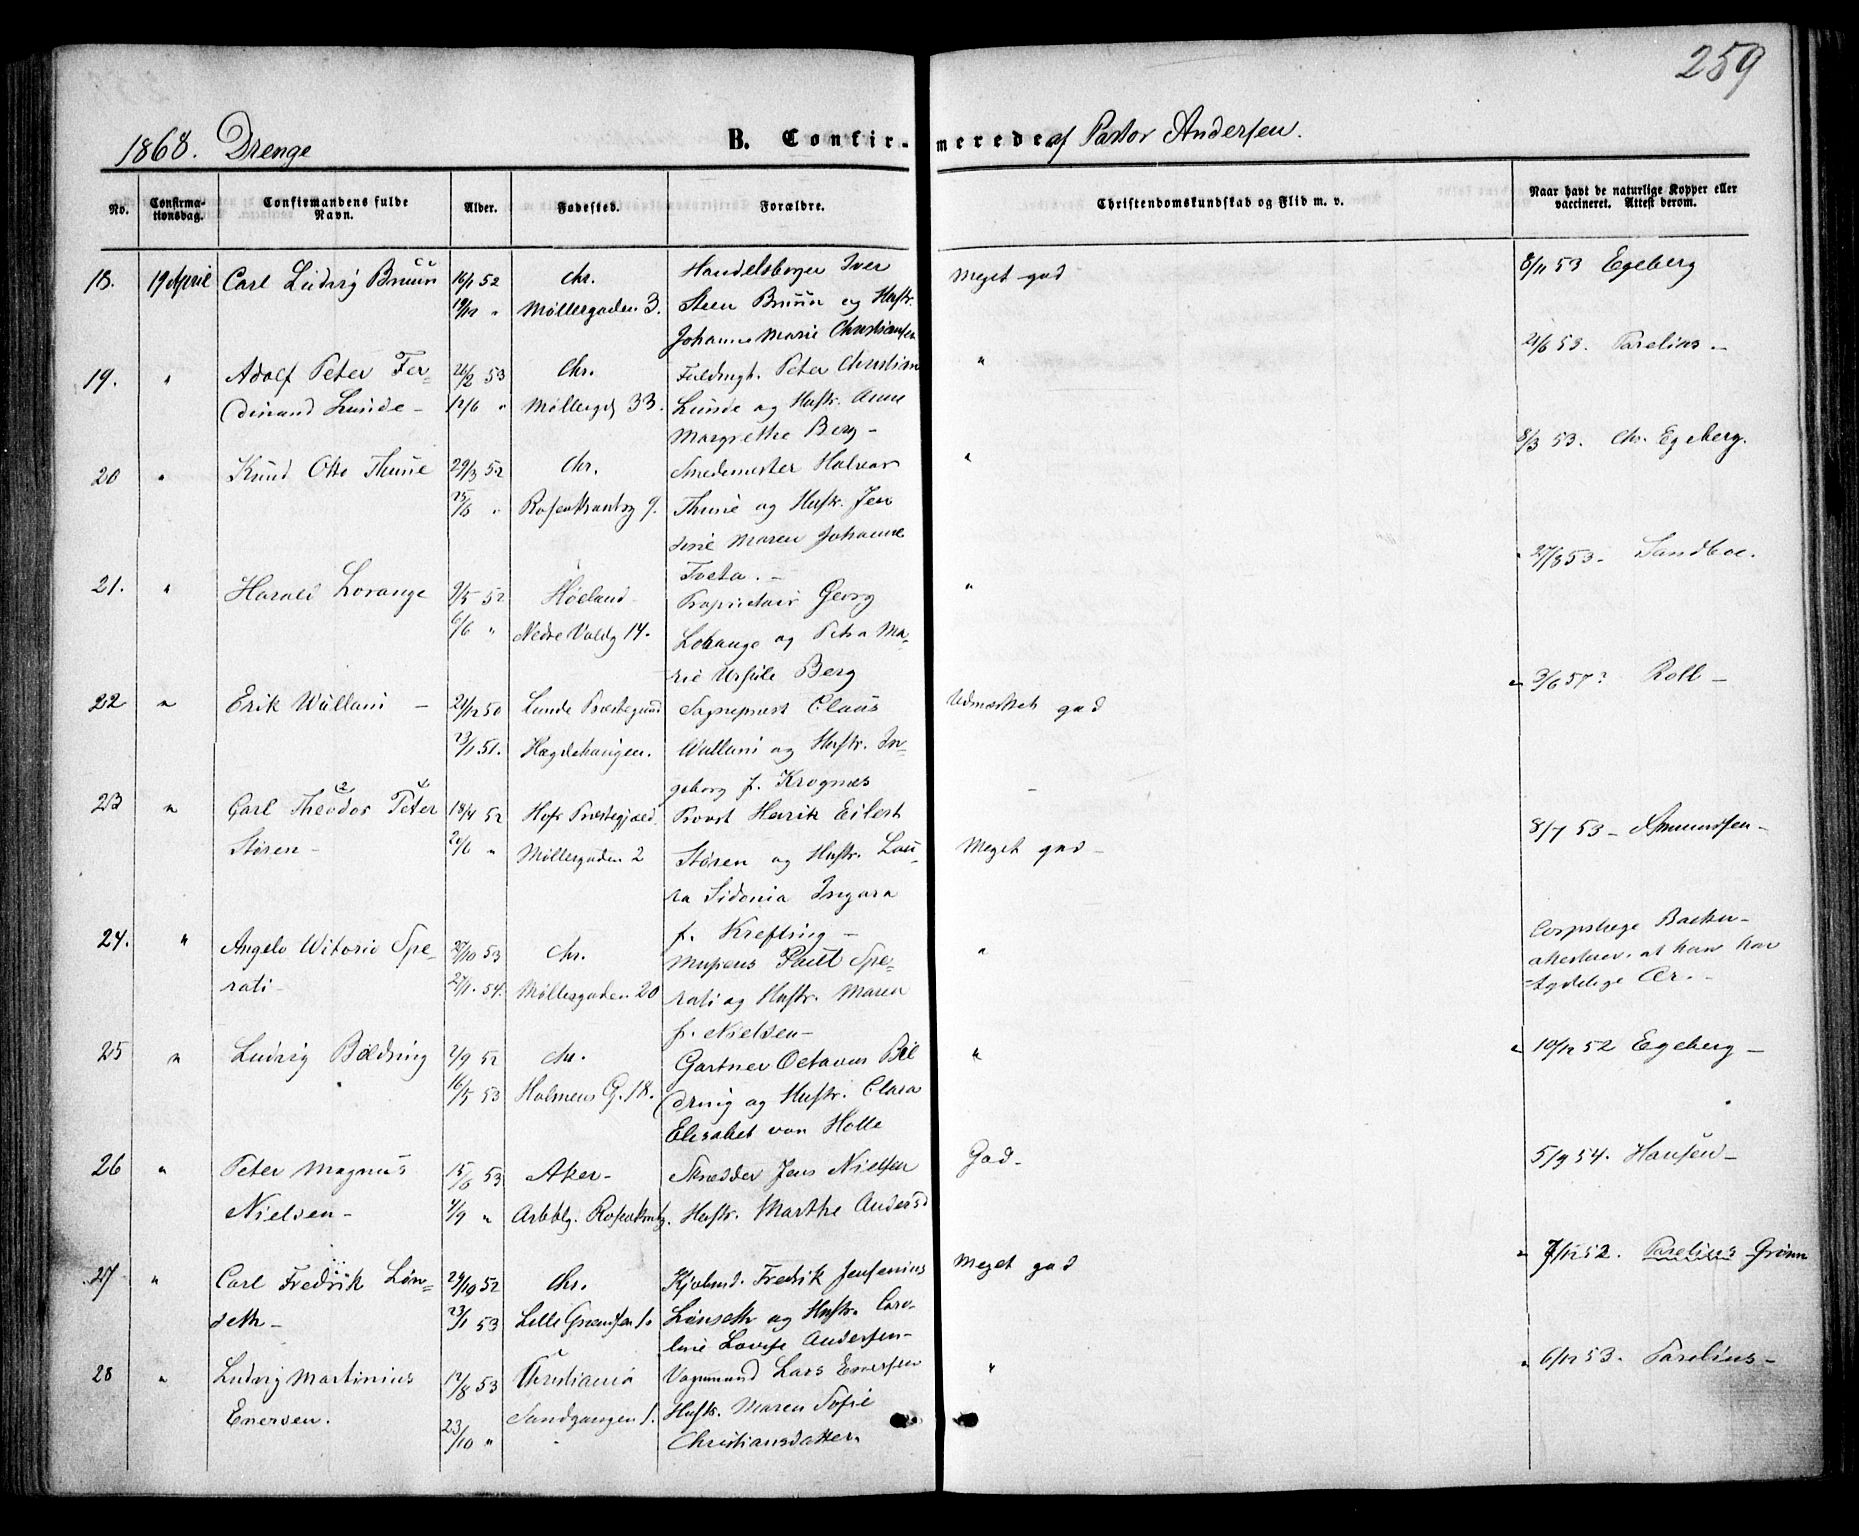 259
1868. Drenge B. Confirmerede af Pastor Andersen.
No. Confirmationsdag. Confirmandens fulde Navn. Alder. Fødested. Forældre. Christendomskundskab og Flid m. v. Naar havt de naturlige Kopper eller vaccineret. Attest derom.
18. 19 April Carl Ludvig Bruun 16/1 52 Chr. Handelsborger Iver Meget god 8/11 53 Egeberg
" Møllergaden 3. Steen Bruun og Hustr.
Johanne Marie Christiansen
19. " Adolf Peter Fer- 26/2 53 Chr. Fuldmgt. Peter Christian " 21/6 53. Parelius -
dinand Lunde - 12/6 " Møllergd 33. Lunde og Hustr. Anne
Margrethe Berg -
20 " Knud Otto Thune 29/3 52 Chr. Smedemester Halvor " 8/3 53. Chr. Egeberg.
" Rosenkrantzg 9. Thune og Hustr. Jen
sine Maren Johanne
Tveta. -
21. " Harald Lorange 9/5 52 Høland Proprietair Georg " 27/8 53 - Sandboe.
6/6 " Nedre Voldg 14. Lorange og Petra Ma-
rie Ursule Berg
22 " Erik Wullani - 21/12 50 Lunde Præstegaard Sognepræst Claus Udmærket god 3/6 57? Roll -
23/1 51. Hægdehaugen. Wullani og Hustr. In-
geborg f. Krognæs
23 " Carl Theodor Peter 18/4 52 Hofs Præstegjæld. Provst Henrik Eilert - 8/7 53 - Amundsen -
Støren - 20/6 " Møllergaden 2 Støren og Hustr. Lau- Meget god -
ra Sidonia Ingara
f. Krefting -
24. " Angelo Witorio Spe- 20/10 53 Chr. Musicus Paul Spe- " Corpslæge Backer
rati - 27/1. 54. Møllergaden 20 rati og Hustr. Maren attesterer, at han har
f. Nielsen - tydelige Ar. -
25 " Ludvig Boldring 2/9 52 Chr. Gartner Octavus Bol " 10/12 52 Egeberg -
16/5 53 Holmens G. 18. dring og Hustr. Clara
Elisabet von Holte
26 " Peter Magnus 15/6 53 Aker - Skrædder Jens Nielsen God - 5/9 54. Hansen -
Nielsen - 4/9 " Arbblg. Rosenkrntzg. Hustr. Marthe Andersd
27 " Carl Fredrik Løn- 29/10 52 Chr. Kjøbmd. Fredrik Jensenius Meget god 7/12 52. Parelius Grønn
seth - 23/1 53 Lille Grændsen 1. Lønseth og Hustr. Caro-
line Lovise Andersen -
28 " Ludvig Martinius 12/8 53 Christiania Vognmand Lars Enersen " 6/12 53. Parelius -
Enersen. 23/10 " Sandgangen 1. Hustr. Maren Sofie
Christiansdatter.